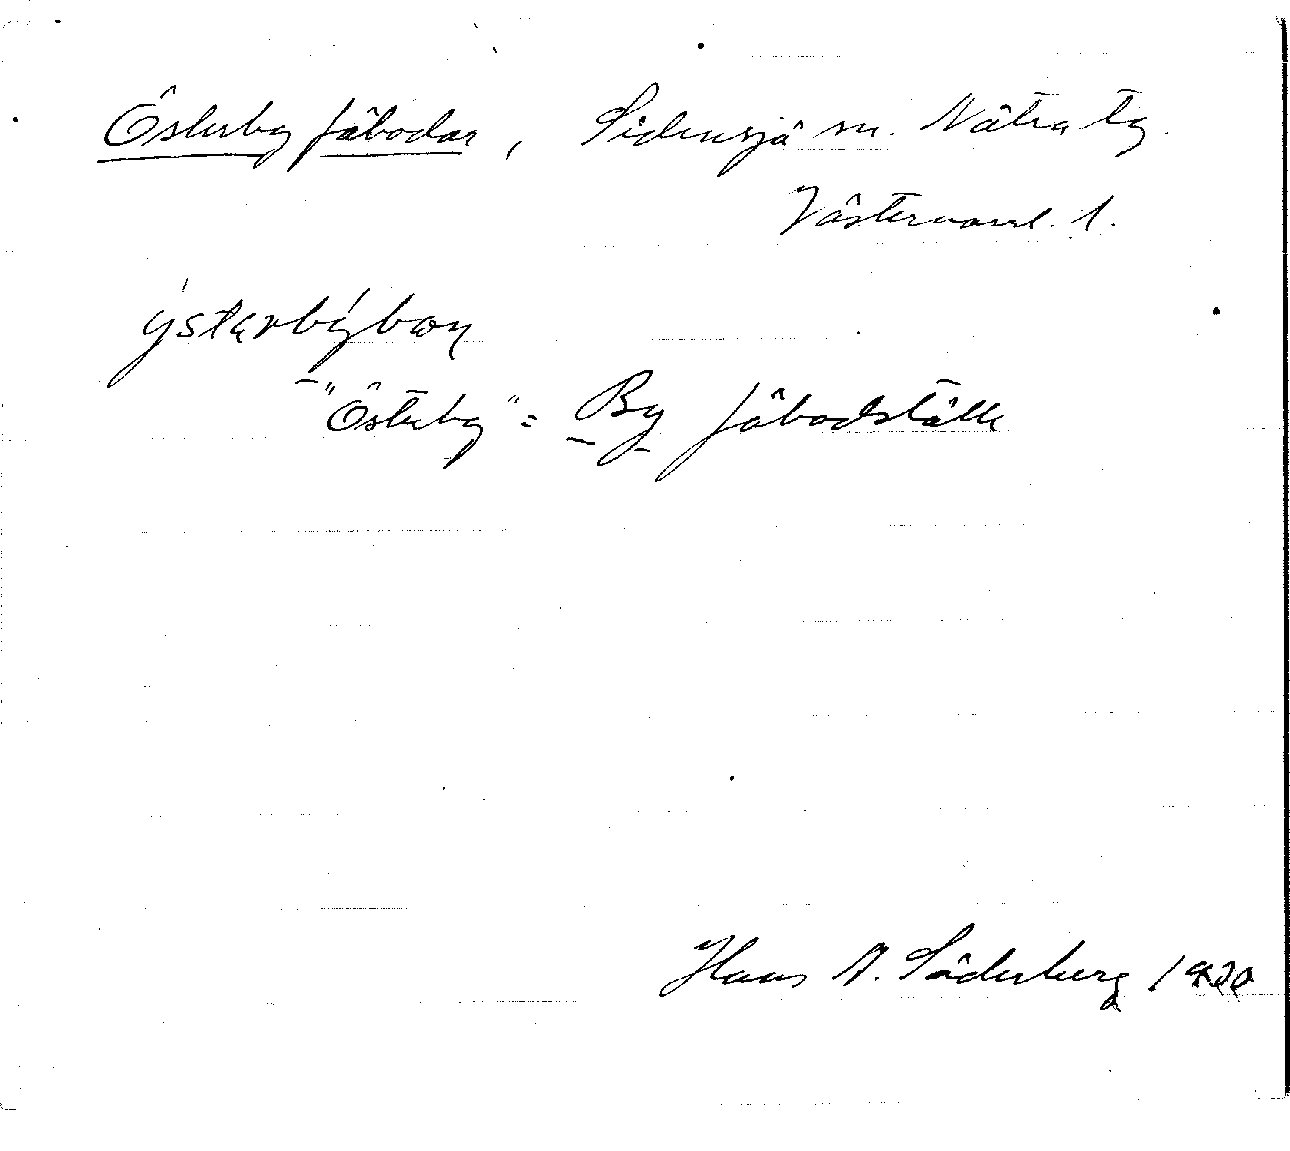 Österby fäbodar, Sidensjö sn. Nätra tg.
Västernorrl. l.
ýstərbýbon
"Österby" = By fäbodställe
Hans A. Söderberg 1920